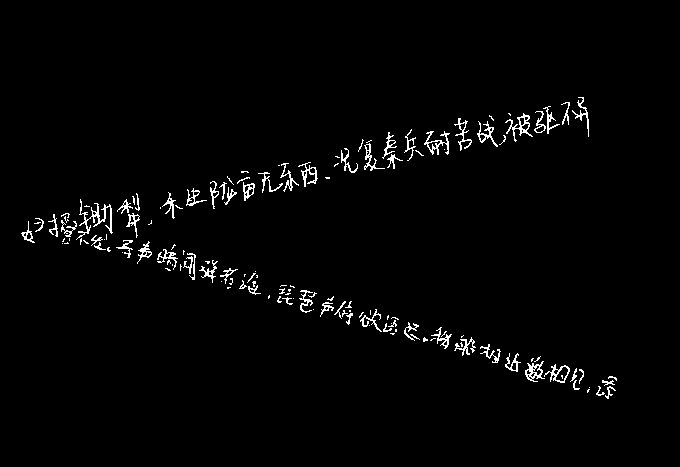 把锄犁,禾生陇亩无东西.况复秦兵耐苦战,被驱不异
不发.寻声暗问弹者谁,琵琶声停欲语迟.移船相近邀相见,添